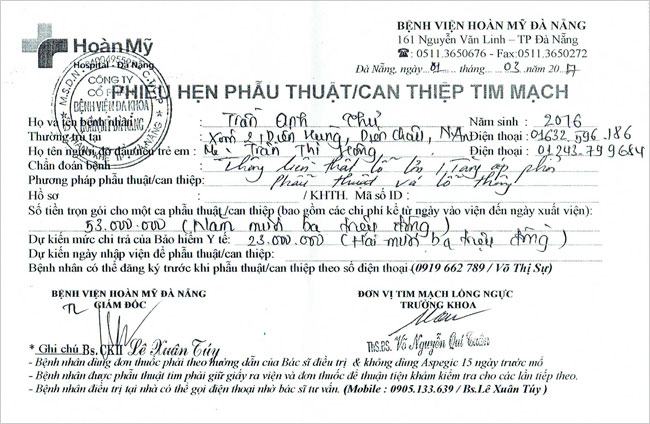 BỆNH VIỆN HOÀN MỸ ĐÀ NẴNG
161 Nguyễn Văn Linh – TP Đà Nẵng
☎: 0511.3650676 - Fax:0511.3650272
Hoàn Mỹ
Hospital - Đà Nẵng
Đà Nẵng, ngày 01 tháng 03 năm 2017
CÔNG TY
CỔ PHẦN
BỆNH VIỆN ĐA KHOA
PHIẾU HẸN PHẪU THUẬT/CAN THIỆP TIM MẠCH
Họ và tên bệnh nhân : Trần Anh Thư Năm sinh : 2016
Thường trú tại : Xóm 2, Diễn Hưng, Diễn Châu, N.An Điện thoại : 01632.596.186
Họ tên người đỡ đầu nếu trẻ em : Mẹ Trần Thị Hồng Điện thoại : 01243.799684
Chẩn đoán bệnh : Thông liên thất lỗ lớn, Tăng áp phổi
Phương pháp phẫu thuật/can thiệp: Phẫu thuật vá lỗ thông
Hồ sơ / KHTH. Mã số ID :
Số tiền trọn gói cho một ca phẫu thuật/can thiệp (bao gồm các chi phí kể từ ngày vào viện đến ngày xuất viện):
53.000.000 (Năm mươi ba triệu đồng)
Dự kiến mức chi trả của Bảo hiểm Y tế: 23.000.000 (Hai mươi ba triệu đồng)
Dự kiến ngày nhập viện để phẫu thuật/can thiệp:
Bệnh nhân có thể đăng ký trước khi phẫu thuật/can thiệp theo số điện thoại (0919 662 789 / Võ Thị Sự)
BỆNH VIỆN HOÀN MỸ ĐÀ NẴNG
GIÁM ĐỐC
ĐƠN VỊ TIM MẠCH LỒNG NGỰC
TRƯỞNG KHOA
* Ghi chú Bs.CKII Lê Xuân Túy
ThS.BS. Võ Nguyễn Quí Tuân
- Bệnh nhân dùng đơn thuốc phải theo hướng dẫn của Bác sĩ điều trị & không dùng Aspegic 15 ngày trước mổ
- Bệnh nhân được phẫu thuật tim phải giữ giấy ra viện và đơn thuốc để thuận tiện khám kiểm tra cho các lần tiếp theo.
- Bệnh nhân điều trị tại nhà có thể gọi điện thoại nhờ bác sĩ tư vấn. (Mobile : 0905.133.639 / Bs.Lê Xuân Túy )